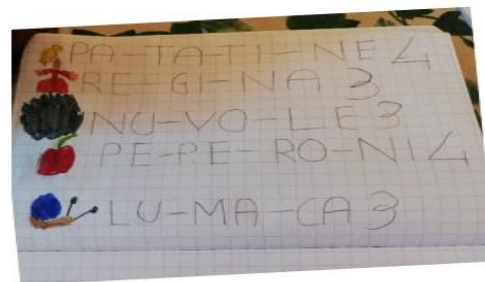 PA-TA-TI-NE 4
RE-GI-NA 3
NU-VO-LE 3
PE-PE-RO-NI 4
LU-MA-CA 3